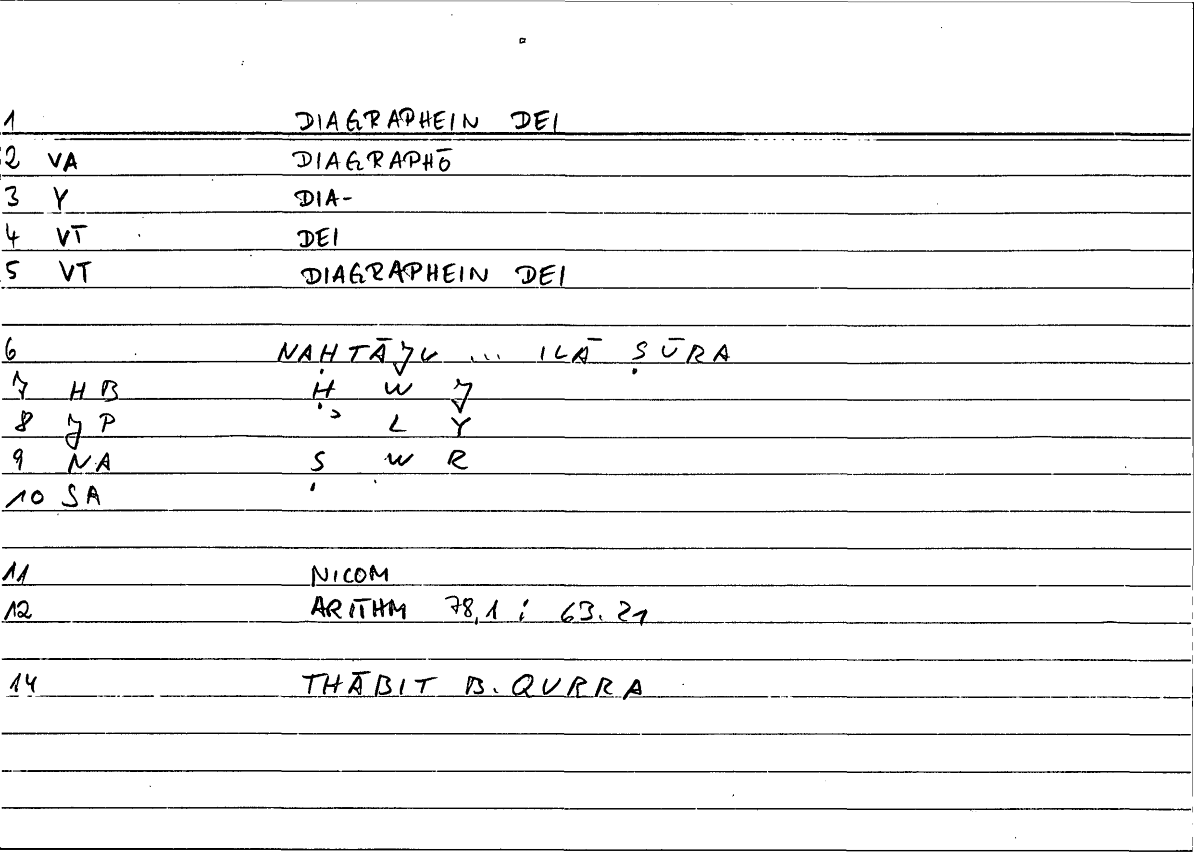 1 DIAGRAPHEIN DEI
2 VA DIAGRAPHŌ
3 Y DIA-
4 VT DEI
5 VT DIAGRAPHEIN DEI
6 NAḤTĀJU ... ILĀ ṢŪRA
7 HB Ḥ W J
8 JP ʾ L Y
9 NA Ṣ W R
10 SA
11 NICOM
12 ARITHM 78,1 ; 63.21
14 THĀBIT B. QURRA